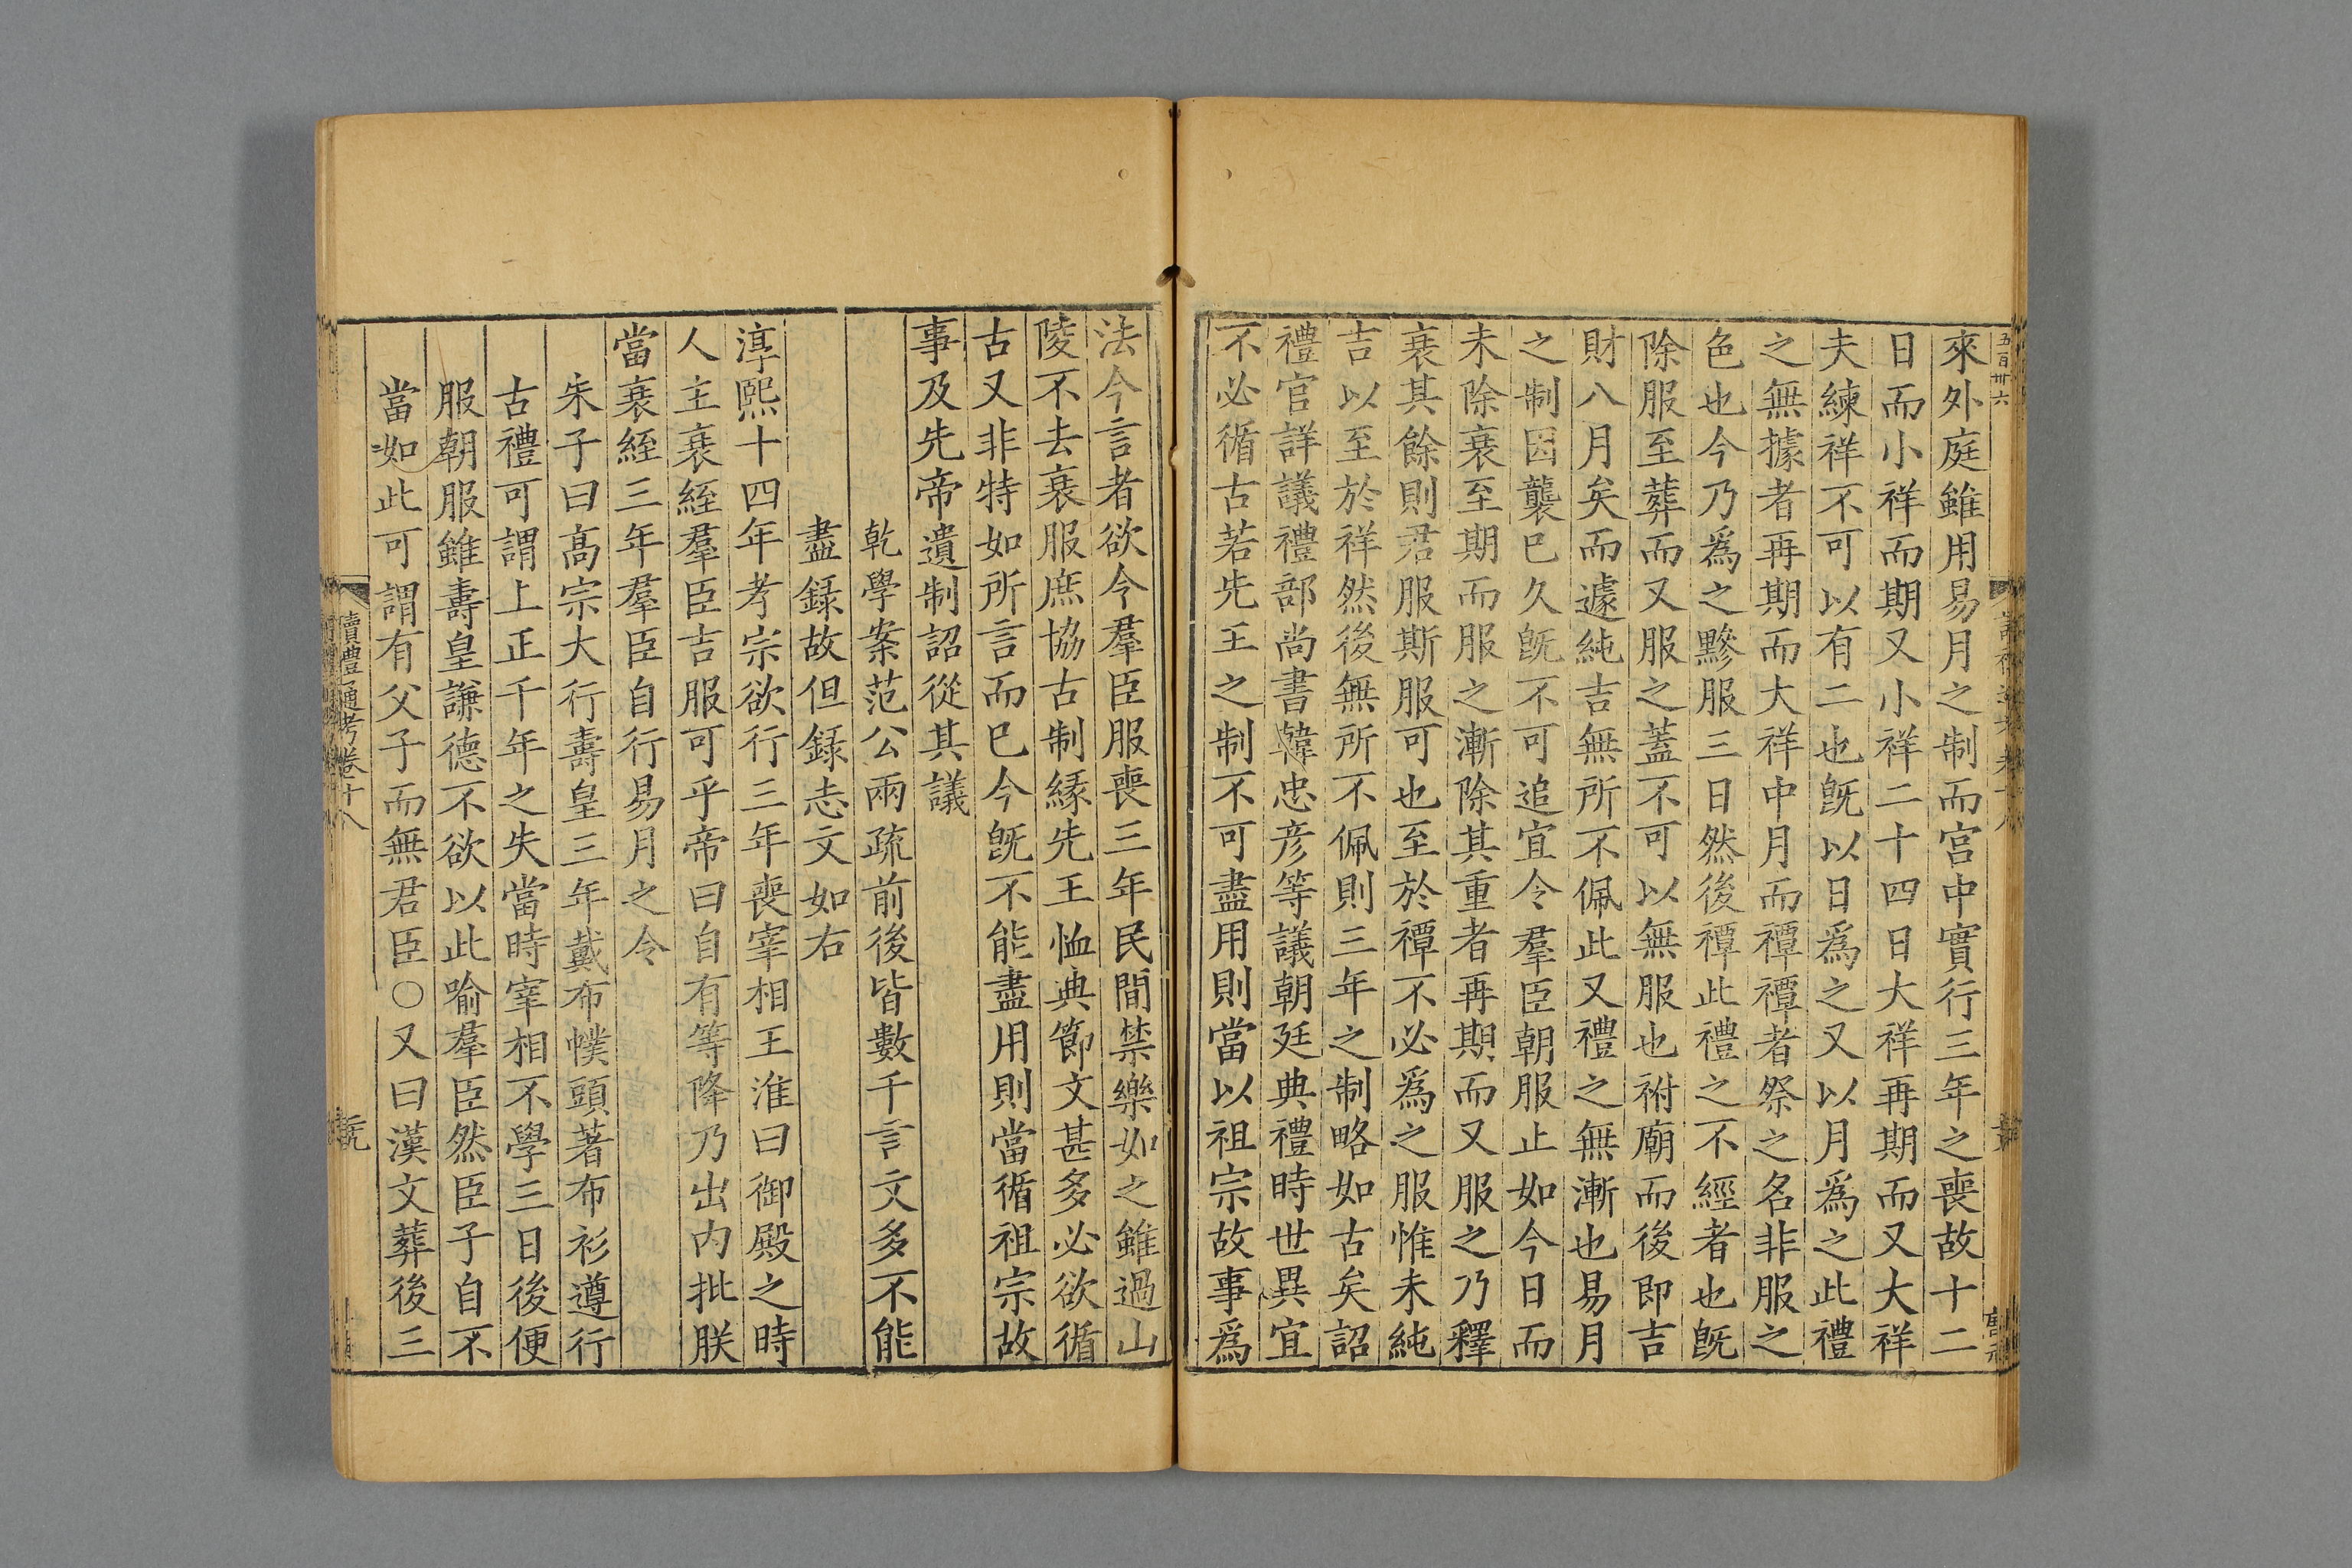 五百卅六
來外庭雖用易月之制而宫中實行三年之喪故十二
日而小祥而期又小祥二十四日大祥再期而又大祥
夫練祥不可以有二也旣以日爲之又以月爲之此禮
之無據者再期而大祥中月而禫禫者祭之名非服之
色也今乃爲之黲服三日然後禫此禮之不經者也旣
除服至葬而又服之蓋不可以無服也祔廟而後即吉
財八月矣而遽純吉無所不佩此又禮之無漸也易月
之制因襲已久旣不可追宜令羣臣朝服止如今日而
未除衰至期而服之漸除其重者再期而又服之乃釋
衰其餘則君服斯服可也至於禫不必爲之服惟未純
吉以至於祥然後無所不佩則三年之制略如古矣詔
禮官詳議禮部尚書韓忠彦等議朝廷典禮時世異宜
不必循古若先王之制不可盡用則當以祖宗故事爲
法今言者欲令羣臣服喪三年民間禁樂如之雖過山
陵不去衰服庶協古制緣先王恤典節文甚多必欲循
古又非特如所言而已今旣不能盡用則當循祖宗故
事及先帝遺制詔從其議
乾學案范公兩疏前後皆數千言文多不能
盡録故但録志文如右
淳熙十四年孝宗欲行三年喪宰相王淮曰御殿之時
人主衰絰羣臣吉服可乎帝曰自有等降乃出内批朕
當衰絰三年羣臣自行易月之令
朱子曰高宗大行壽皇三年戴布幞頭著布衫遵行
古禮可謂上正千年之失當時宰相不學三日後便
服朝服雖壽皇謙德不欲以此喻羣臣然臣子自不
當如此可謂有父子而無君臣○又曰漢文葬後三
讀禮通考卷十八